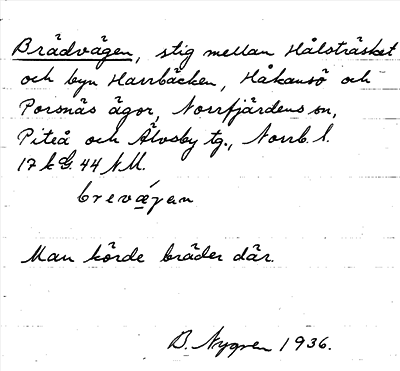 Brädvägen, stig mellan Hålsträsket
och byn Harrbäcken, Håkansö och
Porsnäs ägor, Norrfjärdens sn,
Piteå och Älvsby tg., Norrb. l.
17 k G. 44 N M.
brevæ̀γen
Man körde bräder där.
B. Nygren 1936.